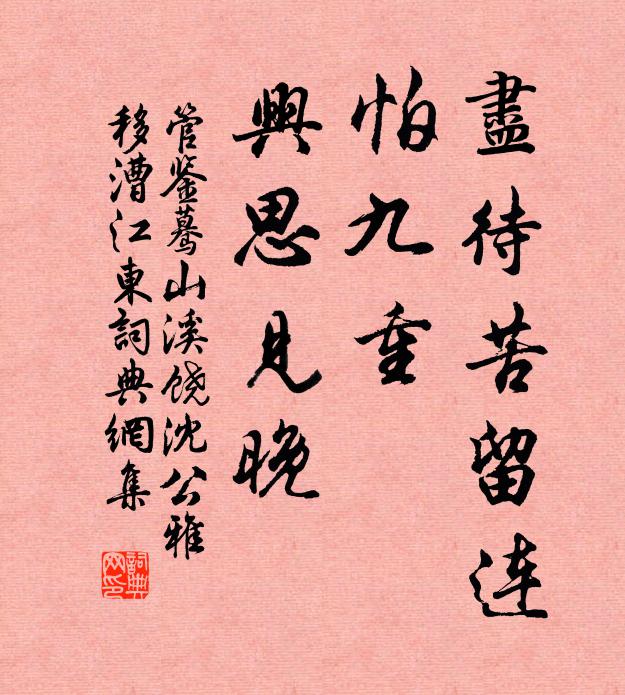 盡待苦留連
怕九重
興思見晚
管鉴蓦山溪饶沈公雅
移漕江東詞典網集
詞典网印